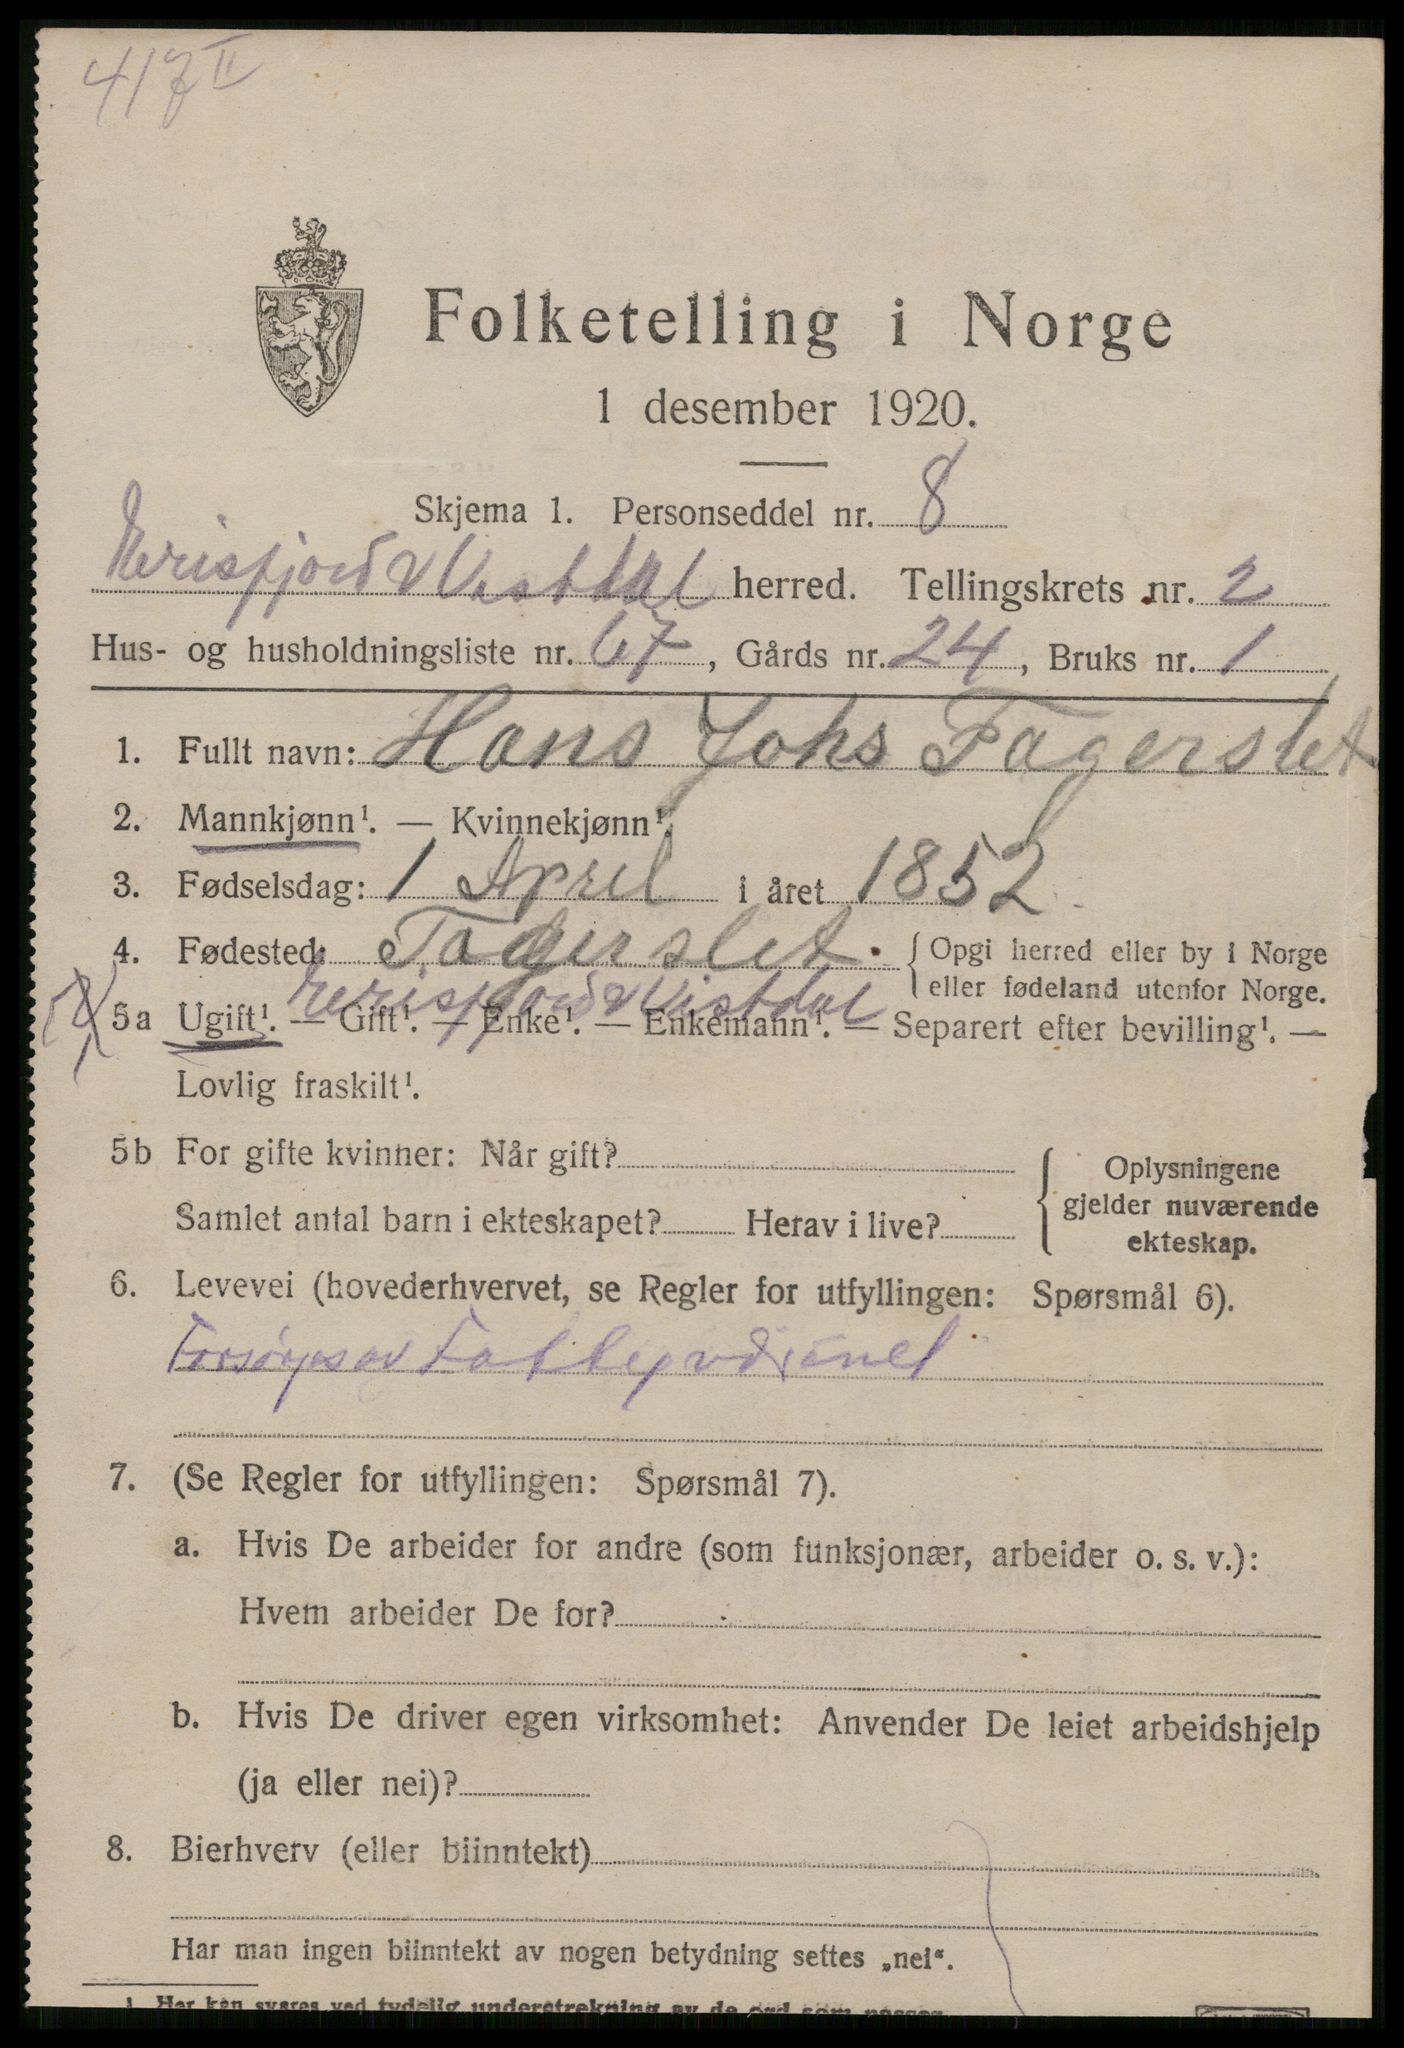 417 II
Folketelling i Norge
1 desember 1920.
Skjema 1. Personseddel nr. 8
Eirisfjord & Vistdal herred. Tellingskrets nr. 2
Hus- og husholdningsliste nr. 67, Gårds nr. 24, Bruks nr. 1
1. Fullt navn: Hans Johs Fagerslet
2. Mannkjønn¹. — Kvinnekjønn¹.
3. Fødselsdag: 1 April i året 1852
4. Fødested: Fagerslet. { Opgi herred eller by i Norge
eller fødeland utenfor Norge.
Eirisfjord & Vistdal
5a Ugift¹. — Gift¹. — Enke¹. — Enkemann¹. — Separert efter bevilling¹. —
Lovlig fraskilt¹.
5b For gifte kvinner: Når gift?
Samlet antal barn i ekteskapet? Herav i live?
Oplysningene
gjelder nuværende
ekteskap.
6. Levevei (hovederhvervet, se Regler for utfyllingen: Spørsmål 6).
Forsørges av Fattigvæsenet
7. (Se Regler for utfyllingen: Spørsmål 7).
a. Hvis De arbeider for andre (som funksjonær, arbeider o. s. v.):
Hvem arbeider De for?
b. Hvis De driver egen virksomhet: Anvender De leiet arbeidshjelp
(ja eller nei)?
8. Bierhverv (eller biinntekt)
Har man ingen biinntekt av nogen betydning settes „nei“.
1 Her kan svares ved tydelig understrekning av de ord som passer